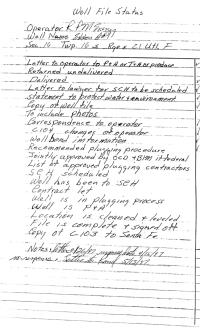 Well File Status
Operator
Well Name
Sec 14 Twp 16 s Rge 21 Ut.
Letter to operator to P&A or T+A or produce
Returned undelivered
Delivered
Letter to lawyer for SCH to be scheduled
statement to protect water & environment
Copy of well file
To include photos
Correspondence to operator
C104 change of operator
Well bond information
Recommended plugging procedure
Jointly approved by OCD & BLM if federal
List of approved plugging contractors
SCH scheduled
Well has been to SCH
Contract let
Well is in plugging process
Well is P+A
Location is cleaned & leveled
File is complete & signed off
Copy of C103 to Santa Fe
Notes:
no response